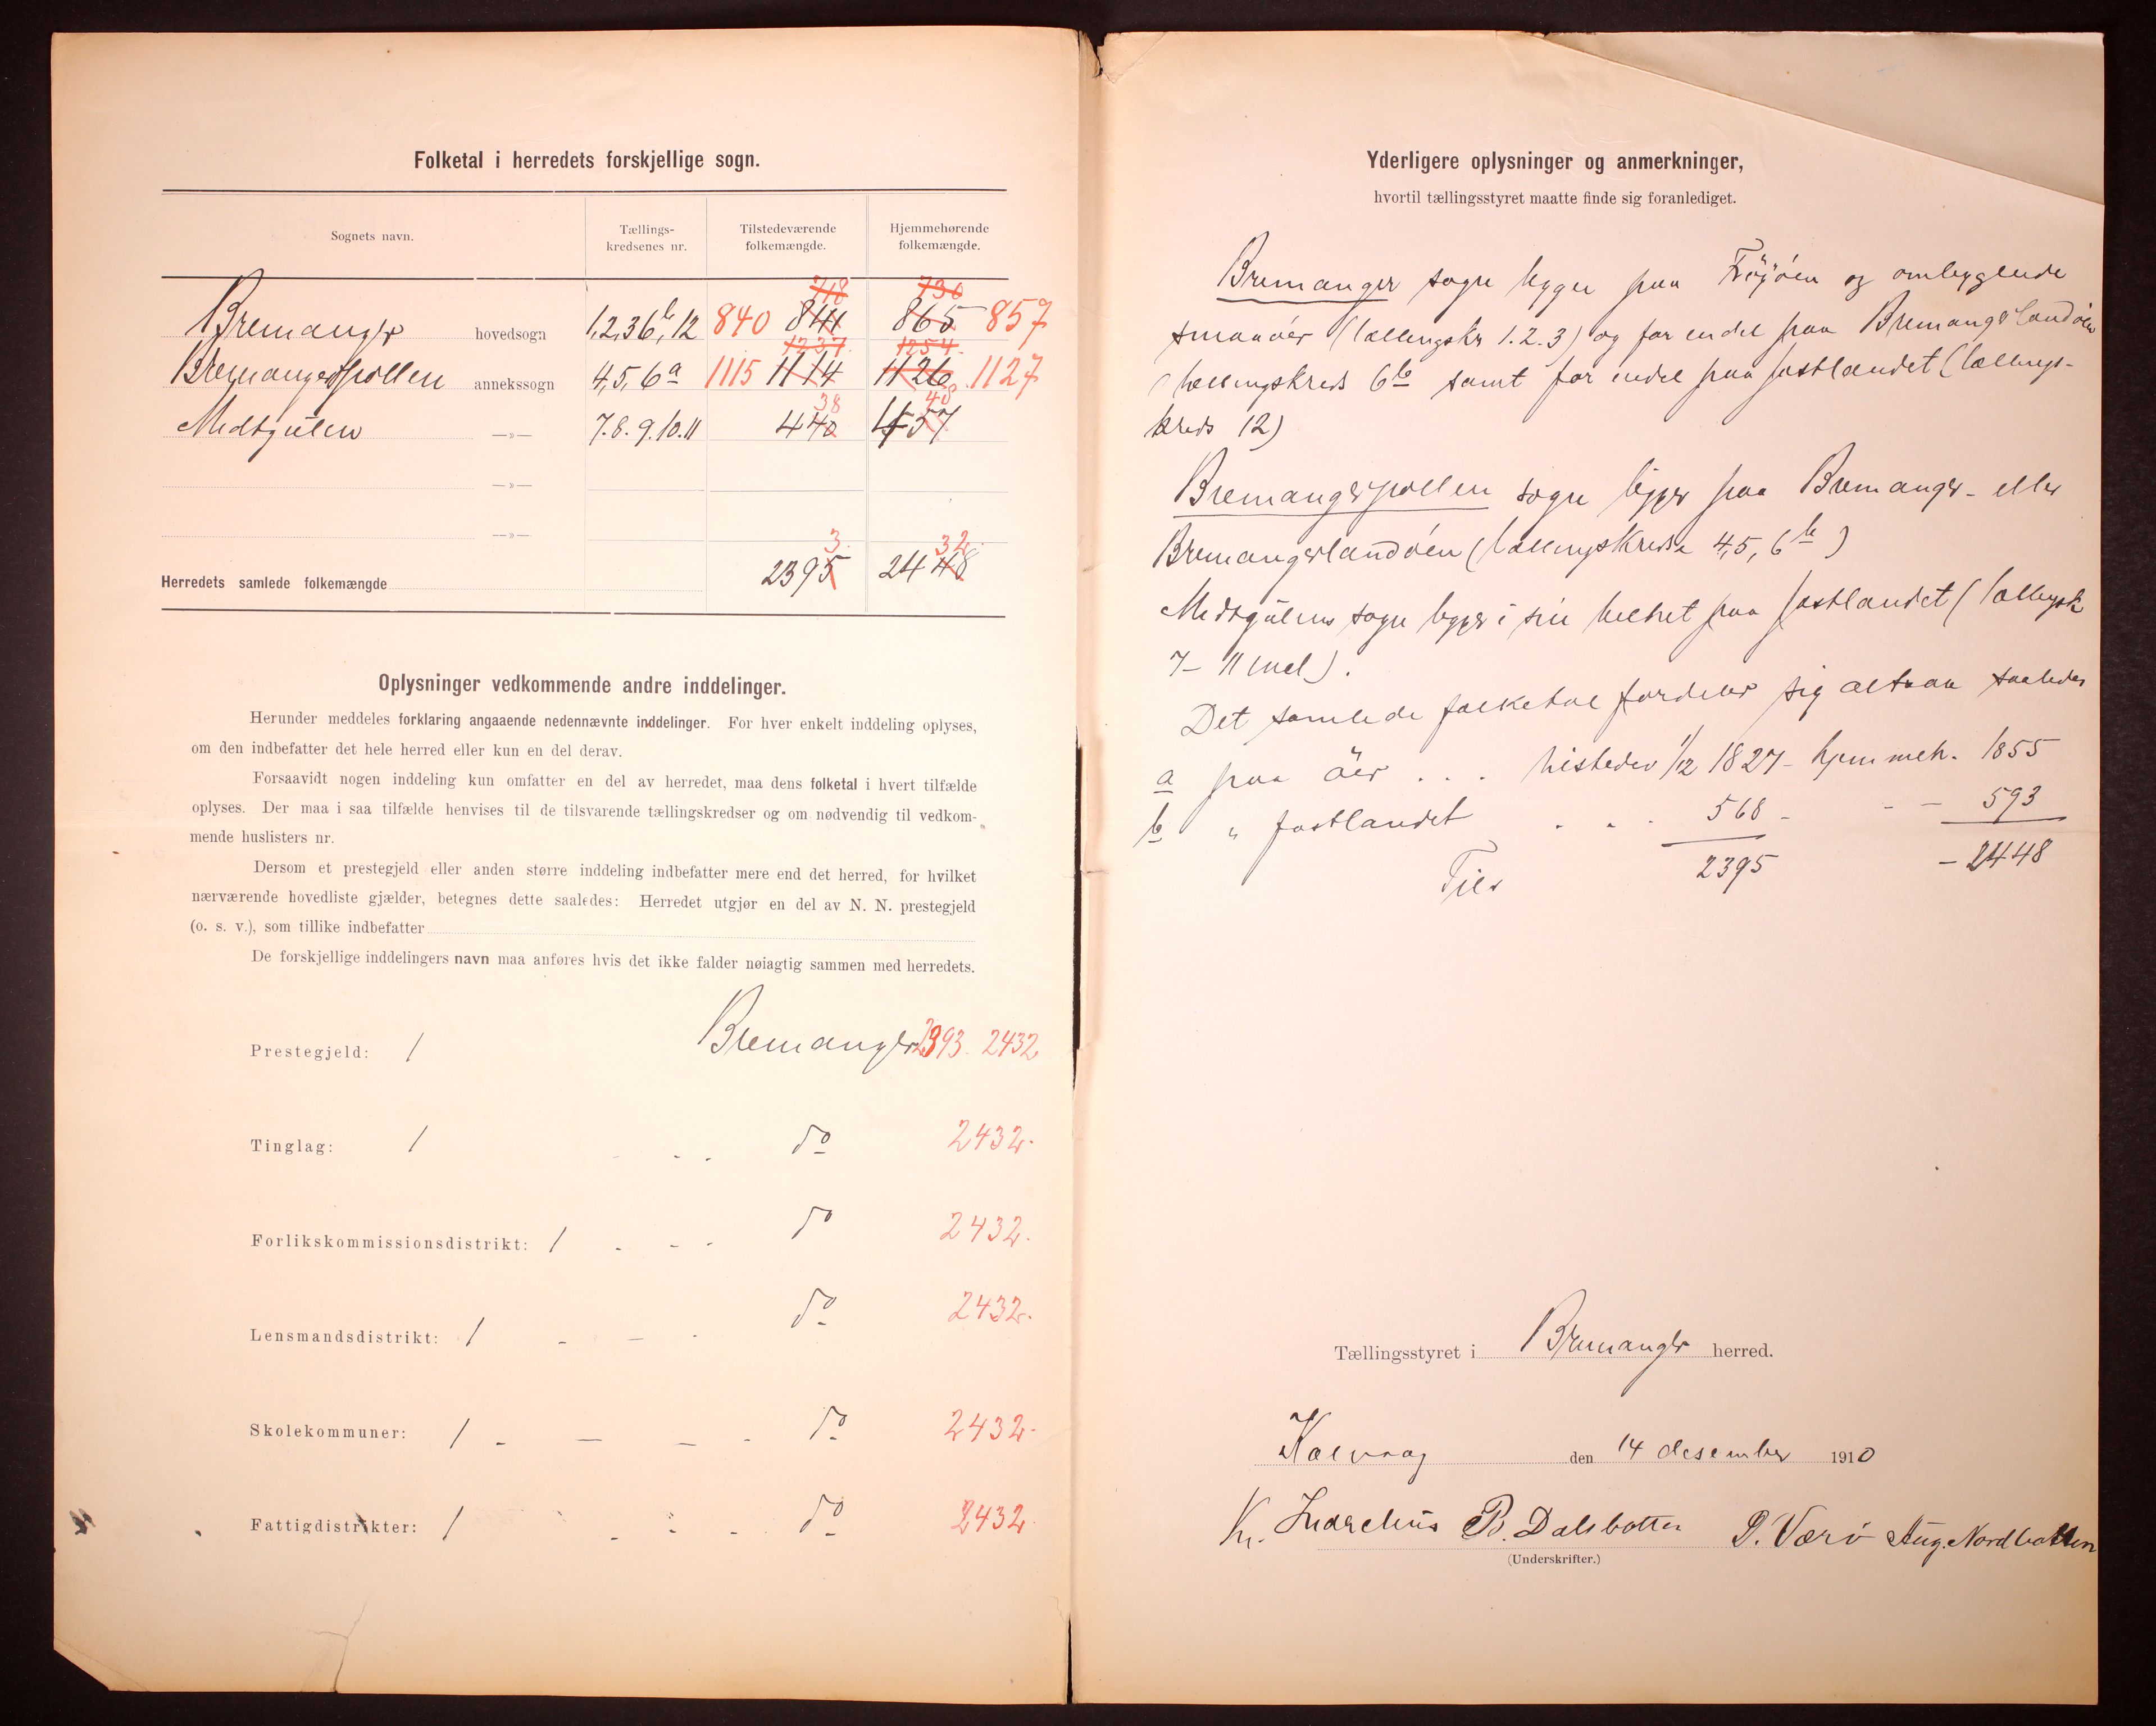 Folketal i herredets forskjellige sogn.
Sognets navn. Tællings-kredsenes nr. Tilstedeværende folkemængde. Hjemmehørende folkemængde.
718 730
Bremanger hovedsogn 1,2,3 6b, 12 840 841 865 857
1237 1254
Bremangerpollen annekssogn 4,5,6a 1115 1114 1126 1127
38 48
Midtgulen —»— 7.8.9.10.11 440 457
—»—
—»—
3 32
Herredets samlede folkemængde 2395 2448
Oplysninger vedkommende andre inddelinger.
Herunder meddeles forklaring angaaende nedennævnte inddelinger. For hver enkelt inddeling oplyses,
om den indbefatter det hele herred eller kun en del derav.
Forsaavidt nogen inddeling kun omfatter en del av herredet, maa dens folketal i hvert tilfælde
oplyses. Der maa i saa tilfælde henvises til de tilsvarende tællingskredser og om nødvendig til vedkom-
mende huslisters nr.
Dersom et prestegjeld eller anden større inddeling indbefatter mere end det herred, for hvilket
nærværende hovedliste gjælder, betegnes dette saaledes: Herredet utgjør en del av N. N. prestegjeld
(o. s. v.), som tillike indbefatter
De forskjellige inddelingers navn maa anføres hvis det ikke falder nøiagtig sammen med herredets.
Prestegjeld: 1 Bremanger 2393. 2432
Tinglag: 1 - - - do 2432.
Forlikskommissionsdistrikt: 1 - - - do 2432.
Lensmandsdistrikt: 1 - - - do 2432.
Skolekommuner: 1 - - - - do 2432.
Fattigdistrikter: 1 - - - - do 2432.
Yderligere oplysninger og anmerkninger,
hvortil tællingsstyret maatte finde sig foranlediget.
Bremanger sogn ligger paa Frøyøen og omliggende
smaaøer (tællingskr 1.2.3) og for endel paa Bremangerlandøen
(tællingskreds 6b samt for endel paa fastlandet (tællings-
kreds 12)
Bremangerpollen sogn ligger paa Bremanger- eller
Bremangerlandøen (tællingskredse 4,5,6b)
Midtgulens sogn ligger i sin helhet paa fastlandet (tællingsk
7–11 incl).
Det samlede folketal fordeler sig altsaa saaledes
a paa øer . . . tilstedev 1/12 1827 - hjemmeh. 1855
b " fastlandet . . . 568 - - - 593
Tils 2395 - 2448
Tællingsstyret i Bremanger herred.
Kalvaag den 14 desember 1910
Kr. P. Dalsbotten P. Værø Aug. Nordbotten
(Underskrifter.)